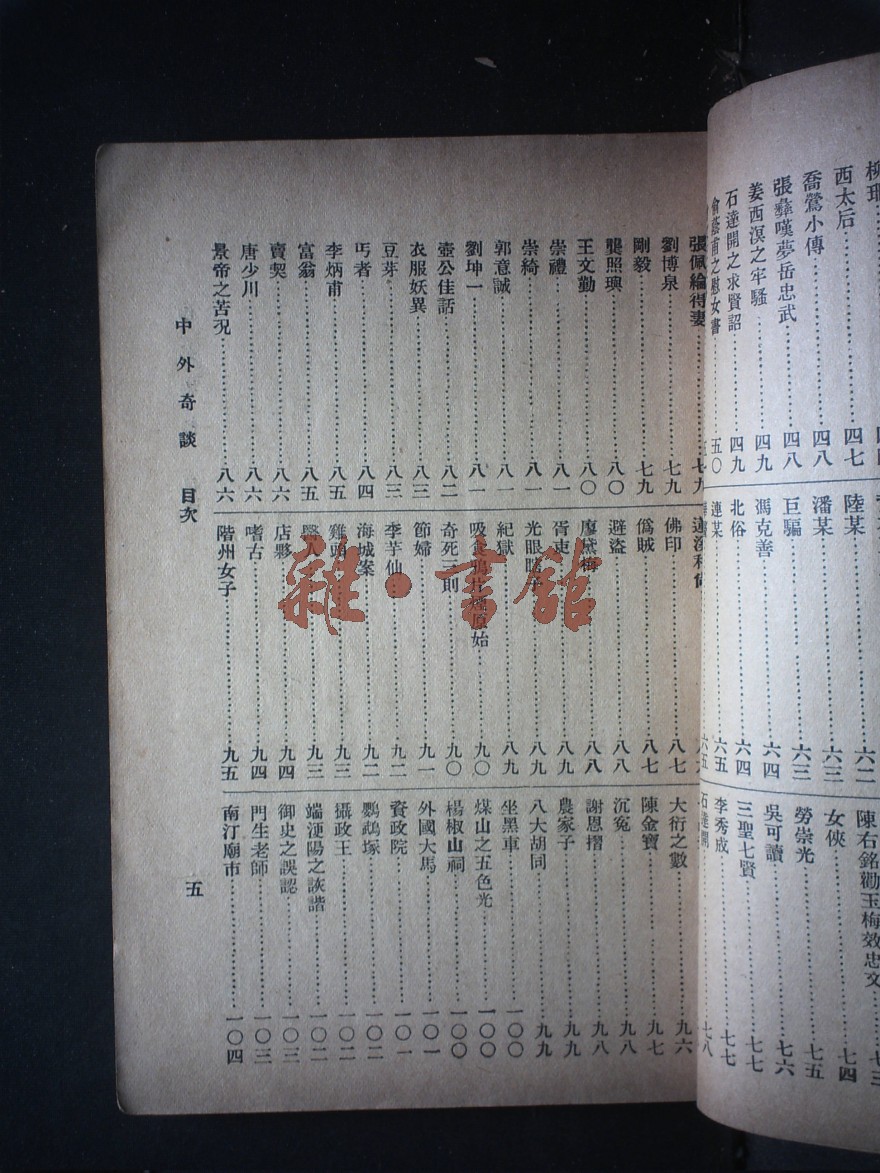 西太后……四七
喬鶯小傳……四八
張彝嘆夢岳忠武……四八
姜西溟之牢騷……四九
石達開之求賢詔……四九
俞蔭甫之慰女書……五〇
陸某……六二
潘某……六三
巨騙……六三
馮克善……六四
北俗……六四
連某……六五
陳右銘勸玉梅效忠文……七三
女俠……七四
勞崇光……七五
吳可讀……七六
三聖七賢……七七
李秀成……七七
石達開……七八
張佩綸得妻……七九
劉博泉……七九
剛毅……七九
龔照璵……八〇
王文勤……八〇
崇禮……八一
崇綺……八一
郭意誠……八一
劉坤一……八一
壺公佳話……八二
衣服妖異……八三
豆芽……八三
丐者……八四
李炳甫……八五
富翁……八五
賣契……八六
唐少川……八六
景帝之苦況……八六
佛印……八七
偽賊……八七
避盜……八八
廖黛梅……八八
胥吏……八九
光眼瞎子……八九
紀獄……八九
吸食鴉片煙原始……九〇
奇死三則……九〇
節婦……九一
李芋仙……九二
海城案……九二
雞頭……九三
醫人……九三
店夥……九四
嗜古……九四
階州女子……九五
大衍之數……九六
陳金寶……九七
沉冤……九八
謝恩摺……九八
農家子……九九
八大胡同……九九
坐黑車……一〇〇
煤山之五色光……一〇〇
楊椒山祠……一〇〇
外國大馬……一〇一
資政院……一〇一
鸚鵡塚……一〇二
攝政王……一〇二
端浭陽之詼諧……一〇二
御史之誤認……一〇三
門生老師……一〇三
南汀廟市……一〇四
中外奇談 目次 五
雜·書館